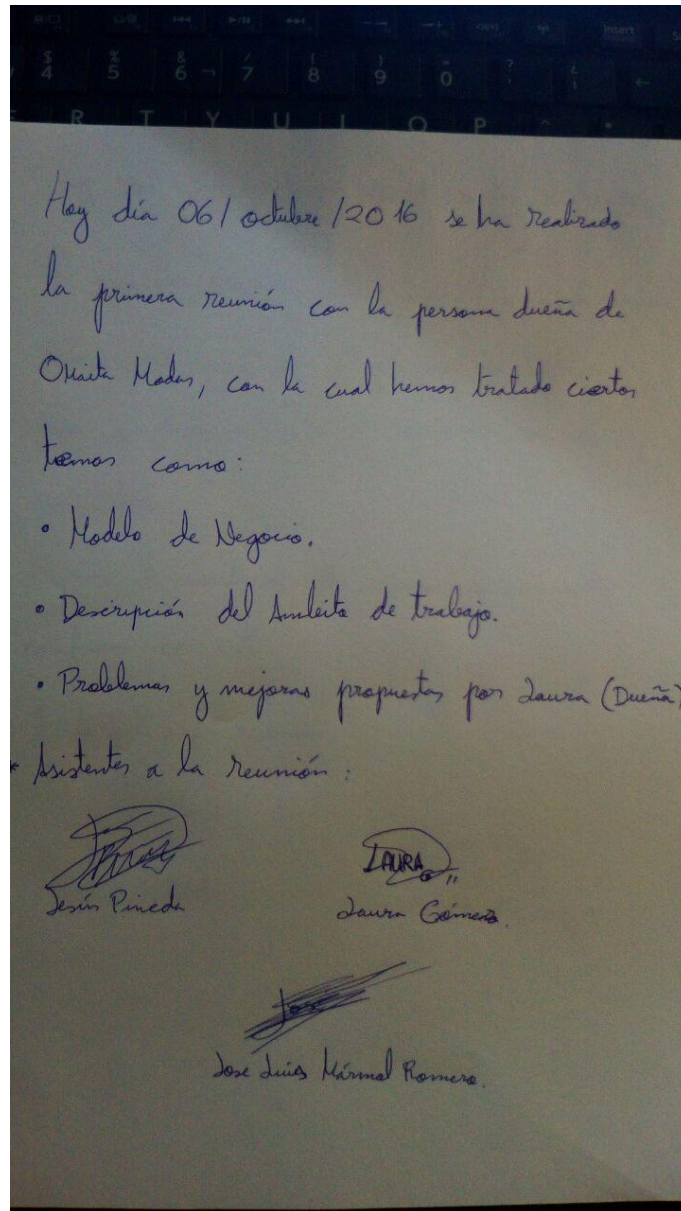 Insert
$ 4 5 & 6 ¬ / 7 ( 8 ) 9 = 0 ? ¿ ¡ ←
R T Y U I O P ^
Hoy día 06/octubre/2016 se ha realizado
la primera reunión con la persona dueña de
Modas, con la cual hemos tratado ciertos
temas como:
• Modelo de Negocio.
• Descripción del Ámbito de trabajo.
• Problemas y mejoras propuestas por Laura (Dueña)
* Asistentes a la reunión:
LAURA
Jesús Pineda Laura
José
Jose Luis Mármol Romero.